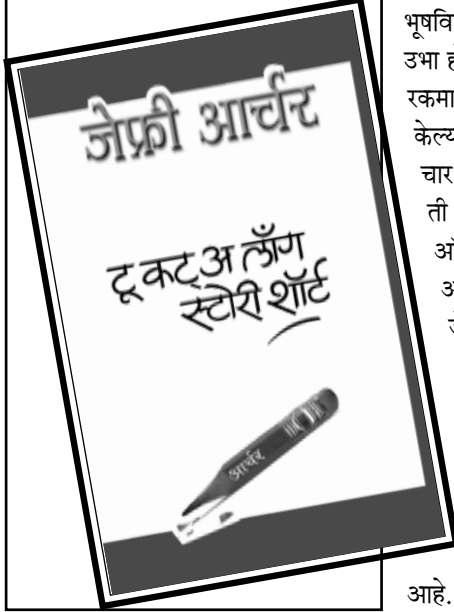 जेफ्री आर्चर
टू कट् अ लाँग
स्टोरी शॉर्ट
आर्चर
भूषवि
उभा ह
रकमा
केल्य
चार
ती
आहे.